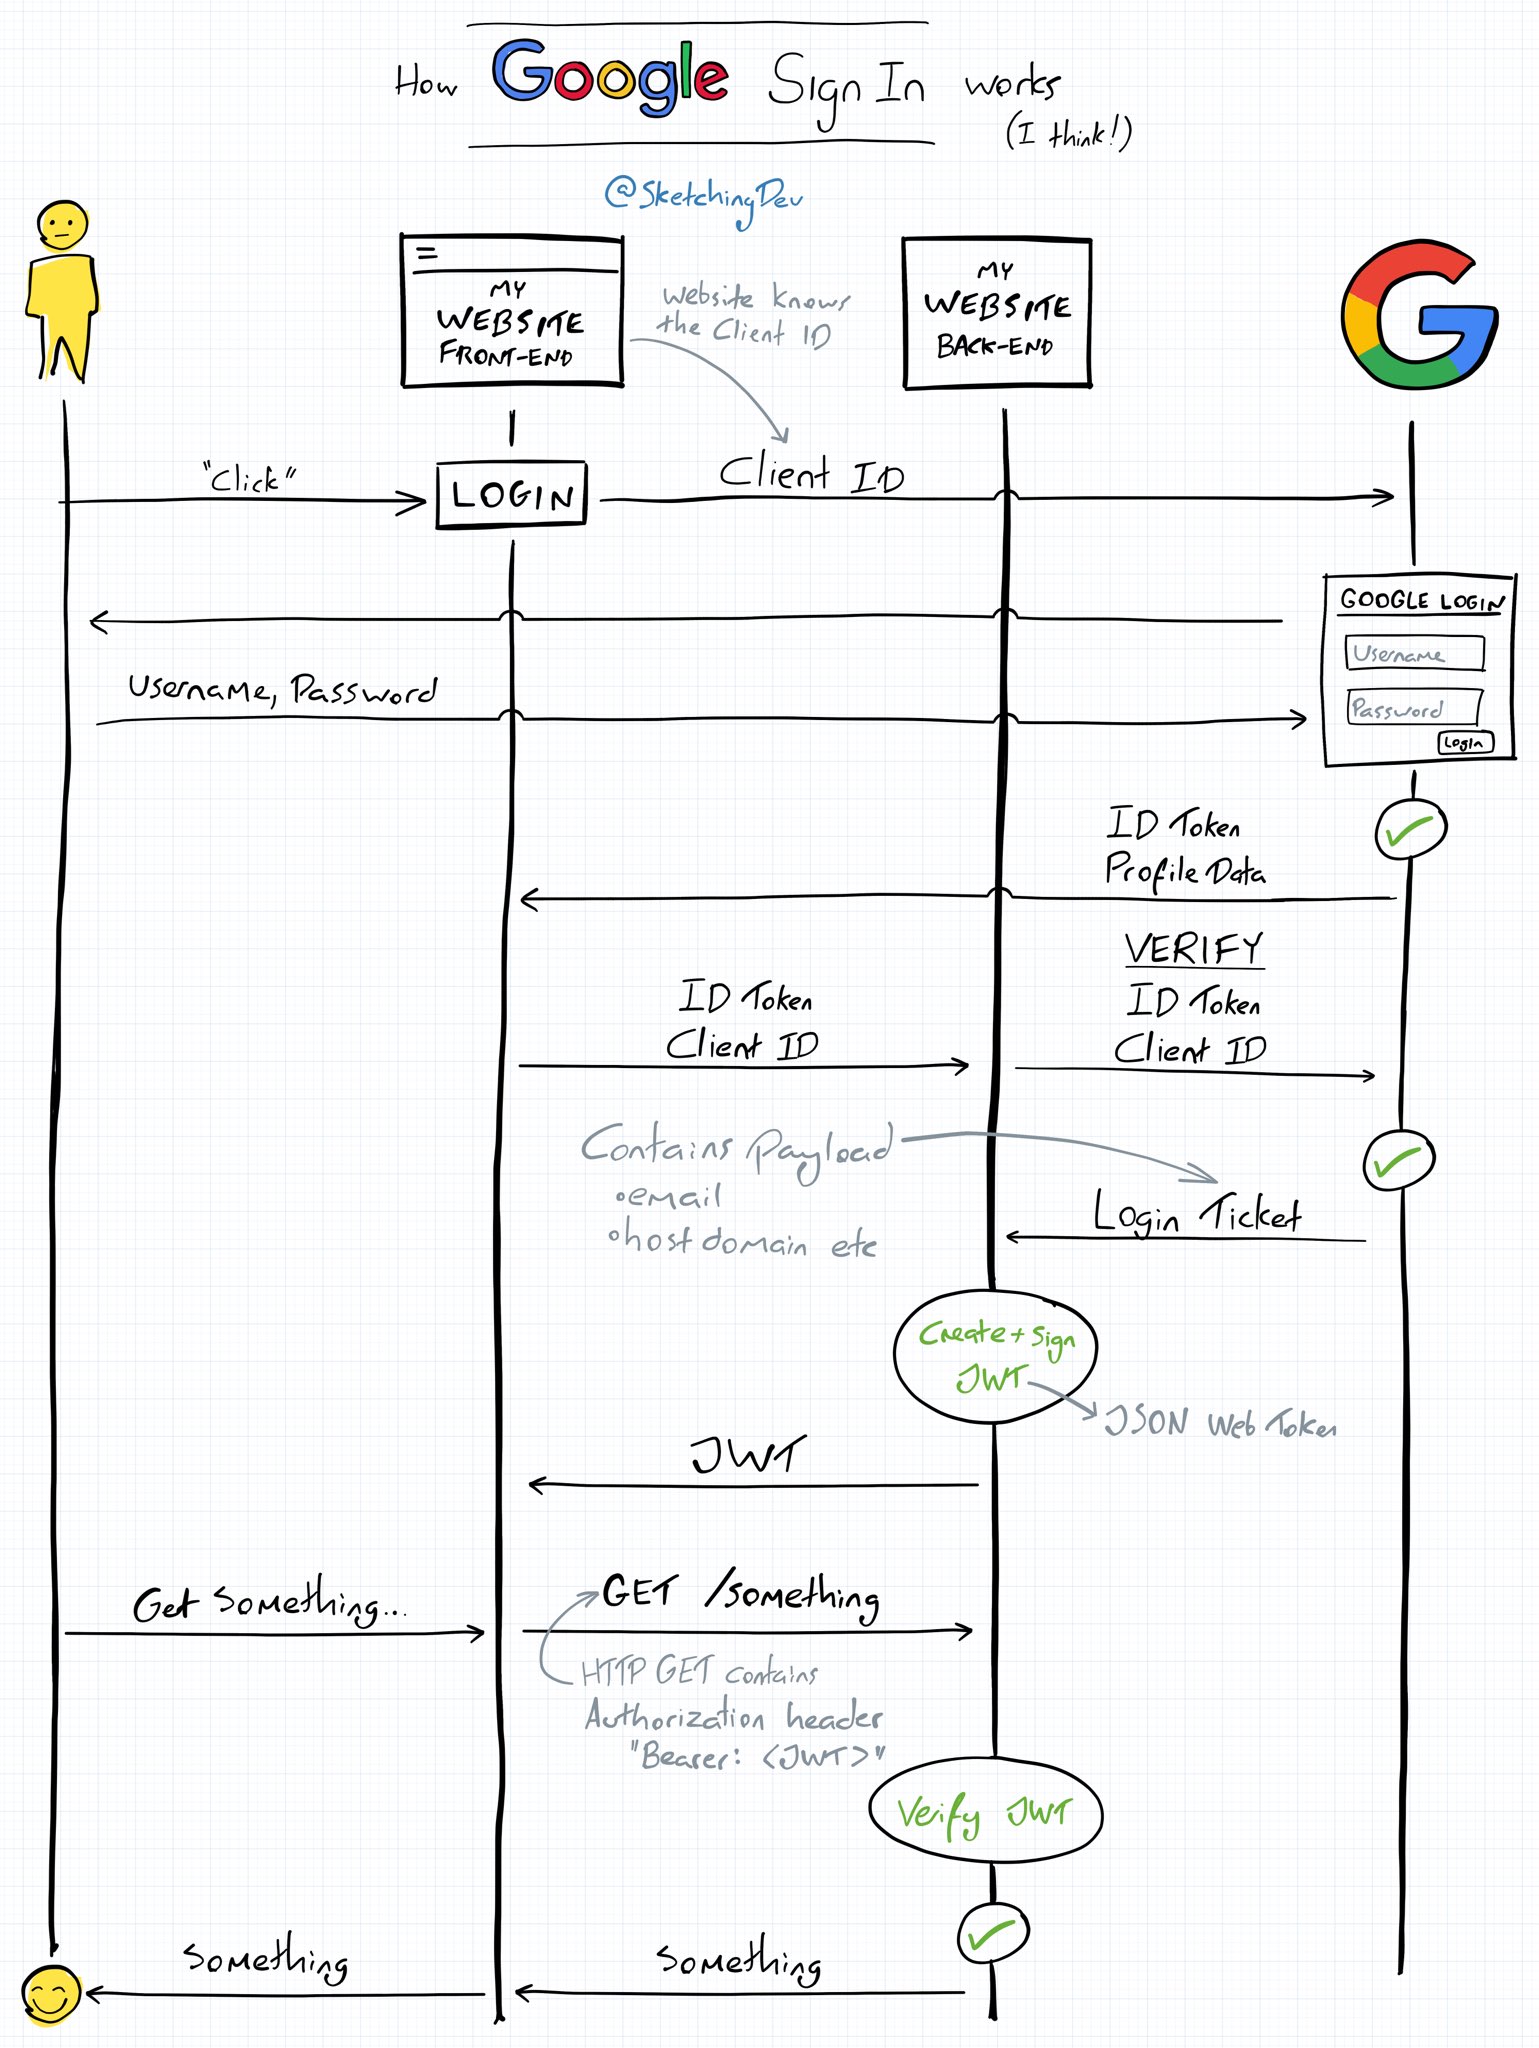 How Google Sign In works
(I think!)
@SketchingDev
MY
WEBSITE
FRONT-END
Website knows
the Client ID
MY
WEBSITE
BACK-END
G
"Click"
LOGIN
Client ID
GOOGLE LOGIN
Username
Password
Login
Username, Password
ID Token
Profile Data
VERIFY
ID Token
Client ID
ID Token
Client ID
Contains payload
•email
•host domain etc
Login Ticket
Create + Sign
JWT
JSON Web Token
JWT
Get Something...
GET /something
HTTP GET contains
Authorization header
"Bearer: <JWT>"
Verify JWT
Something
Something